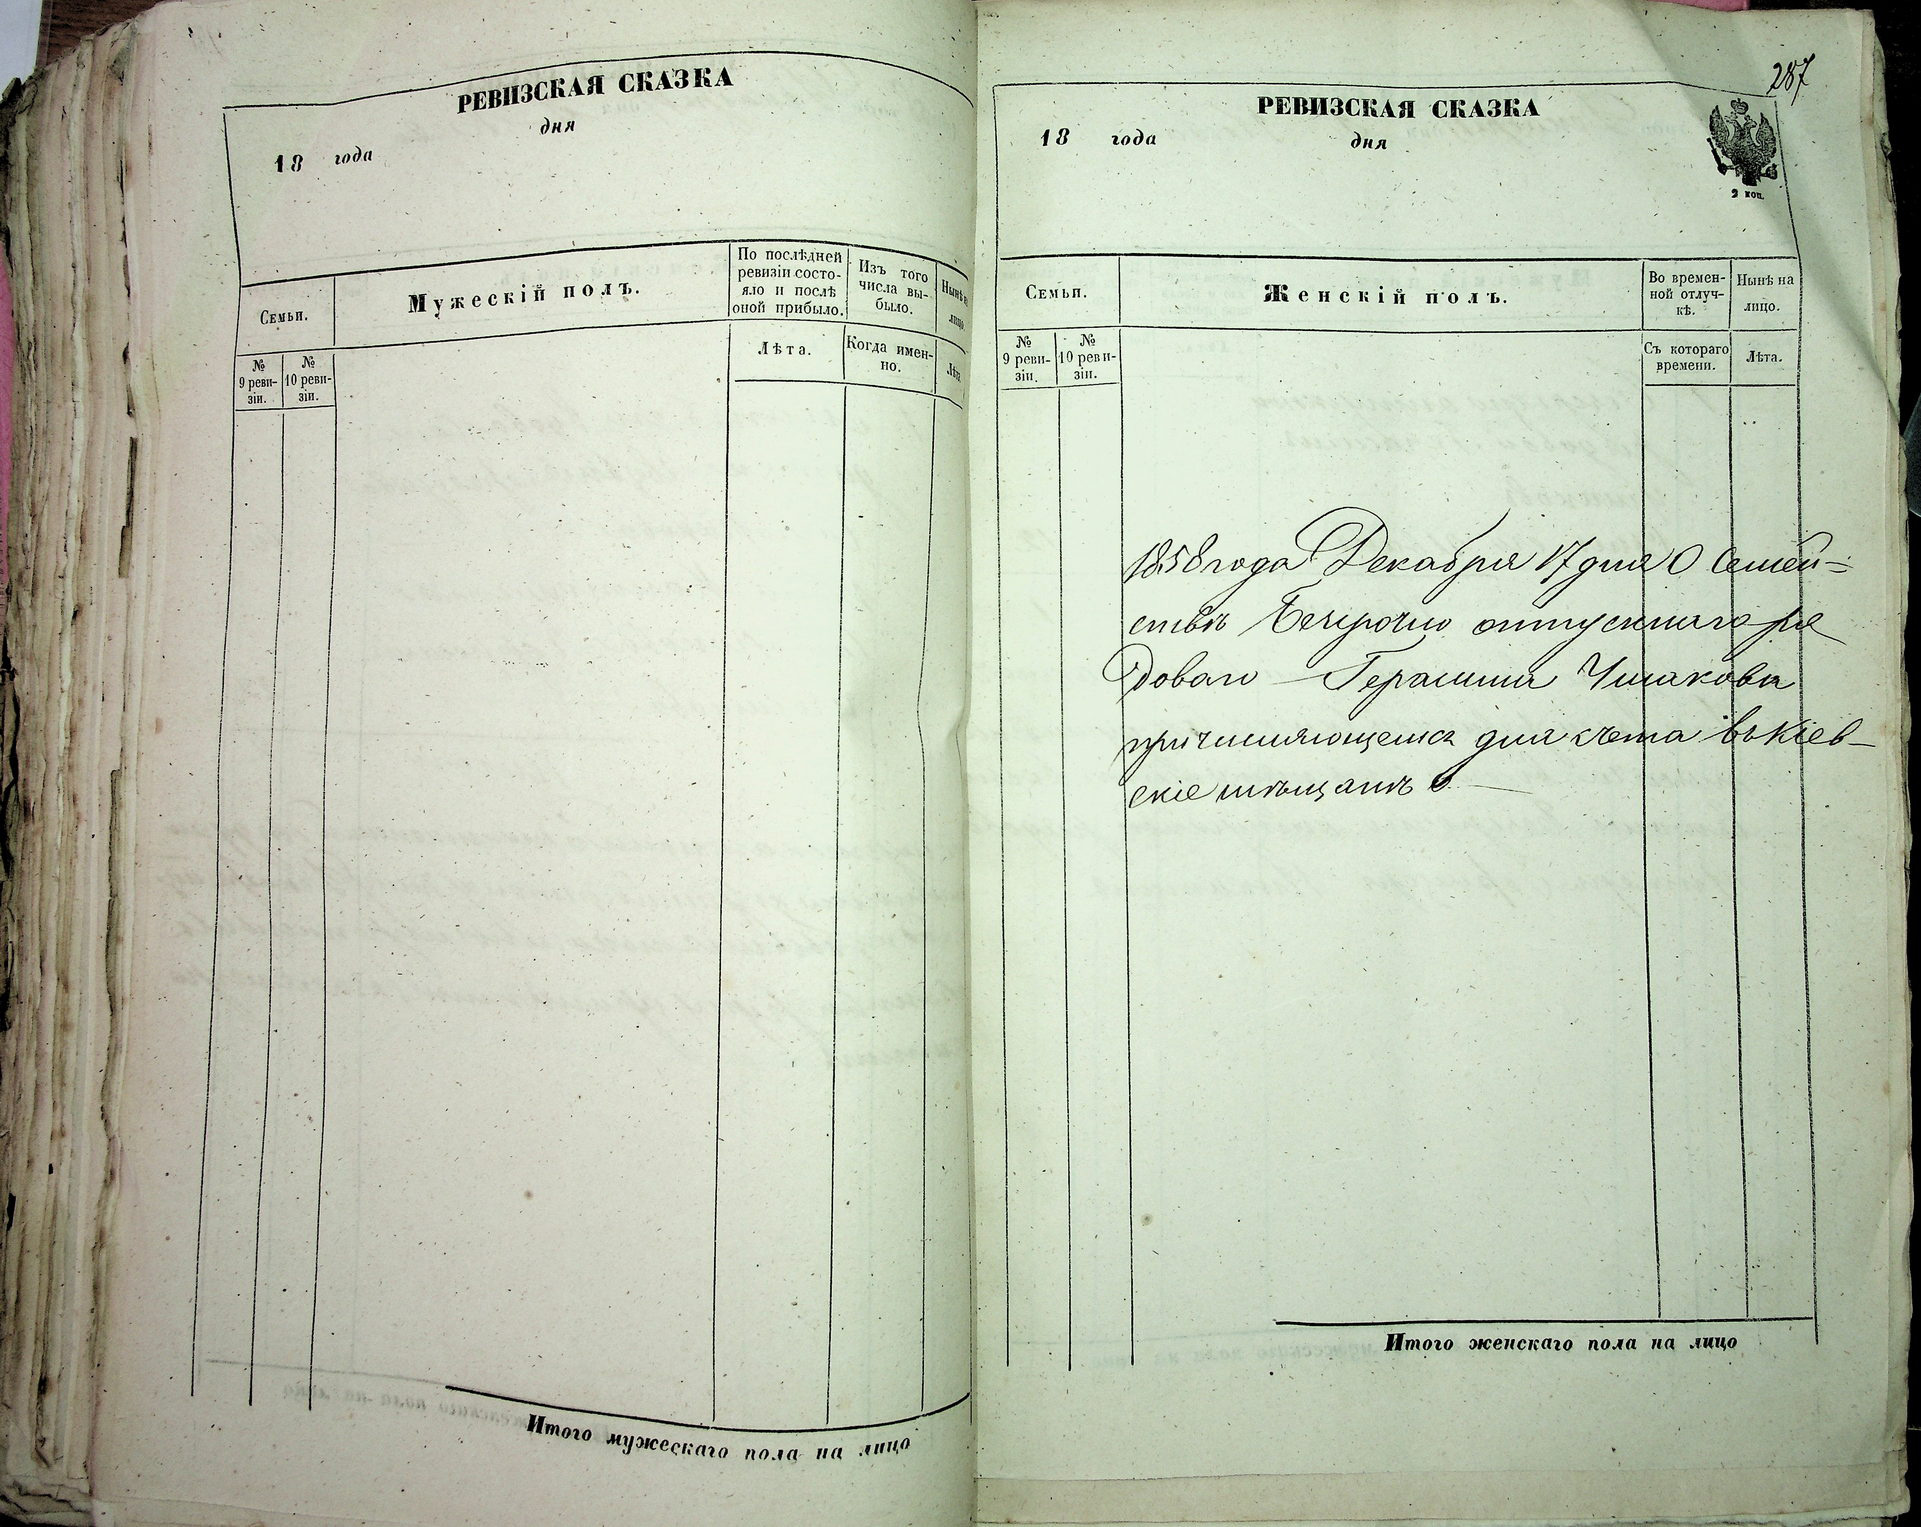 РЕВИЗСКАЯ СКАЗКА
дня
18 года
Семьи.
Мужескій полъ.
По послѣдней
ревизіи состо-
яло и послѣ
оной прибыло.
Изъ того
числа вы-
было.
Нынѣ на
лицо
№
9 реви-
зіи.
№
10 реви-
зіи.
Лѣта.
Когда имен-
но.
Лѣта
Итого мужескаго пола на лицо
287
РЕВИЗСКАЯ СКАЗКА
18 года
дня
2 коп.
Семьи.
Женскій полъ.
Во времен-
ной отлуч-
кѣ.
Нынѣ на
лицо.
№
9 реви-
зіи.
№
10 реви-
зіи.
Съ котораго
времени.
Лѣта.
1858 года Декабря 17 дня О Семей=
ствѣ Безсрочно отпускнаго ря
доваго Герасима
причисляющемся для счета въ Кіев-
скіе мѣщанѣ
Итого женскаго пола на лицо